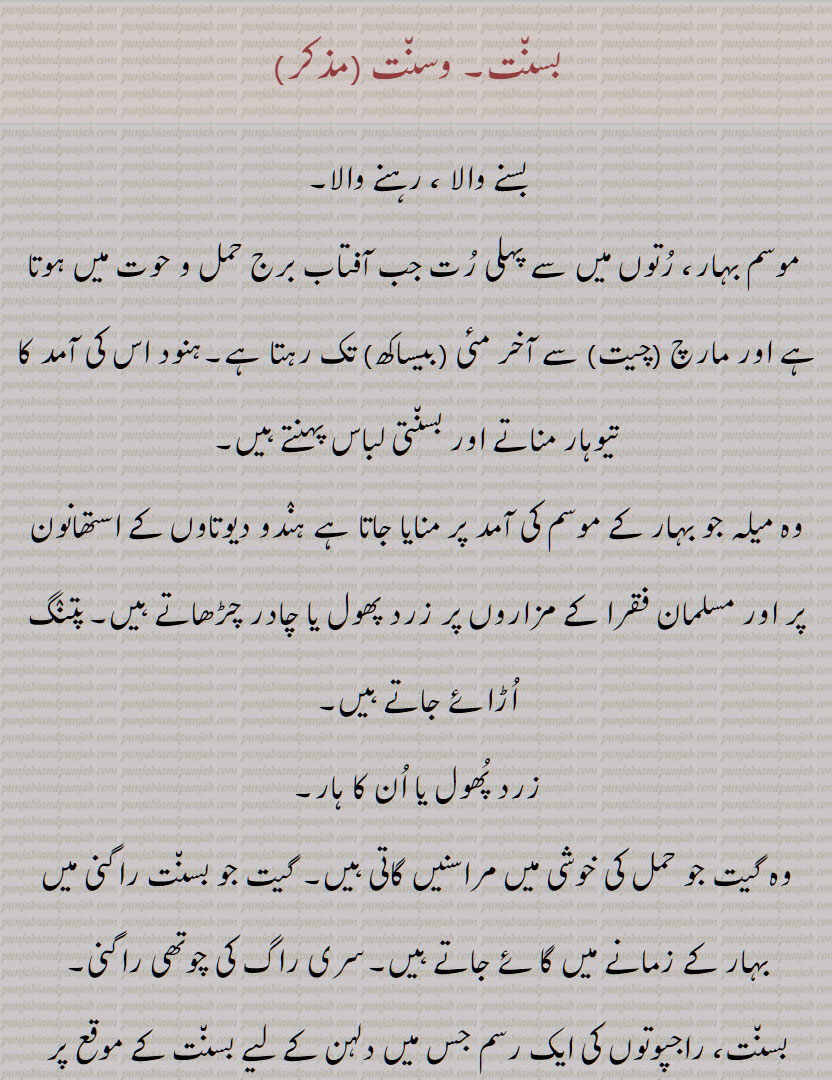 بسنّت۔ وسنّت (مذکر)
بسنے والا ، رہنے والا۔
موسم بہار، رُتوں میں سے پہلی رُت جب آفتاب برج حمل و حوت میں ہوتا
ہے اور مارچ (چیت) سے آخر مئی (بیساکھ) تک رہتا ہے۔ہنود اس کی آمد کا
تیوہار مناتے اور بسنّتی لباس پہنتے ہیں۔
وہ میلہ جو بہار کے موسم کی آمد پر منایا جاتا ہے ہنْدو دیوتاوں کے استھانون
پر اور مسلمان فقرا کے مزاروں پر زرد پھول یا چادر چڑھاتے ہیں۔ پتنْگ
اُڑائے جاتے ہیں۔
زرد پُھول یا اُن کا ہار۔
وہ گیت جو حمل کی خوشی میں مراسنیں گاتی ہیں۔ گیت جو بسنّت راگنی میں
بہار کے زمانے میں گائے جاتے ہیں۔سری راگ کی چوتھی راگنی۔
بسنّت، راجپوتوں کی ایک رسم جس میں دلہن کے لیے بسنّت کے موقع پر